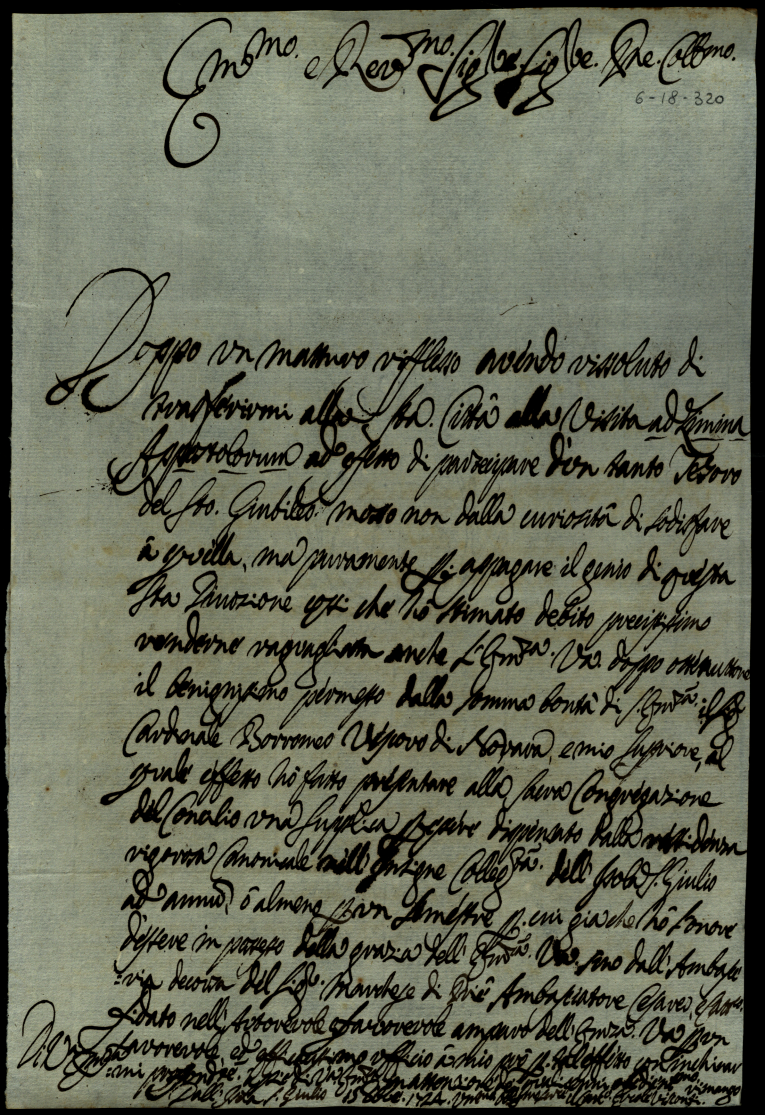 Em.mo e Rev.mo Sig.re Sig.re P.ne Coll.mo
6-18-320
Doppo un matturo rifflesso avendo rissoluto di
trasferirmi alla Sta. Città alla Visita ad Limina
Apostolorum ad effetto di partecipare d'un tanto Tesoro
del Sto. Giubileo: mosso non dalla curiosità di sodisfare
à quella, mà puramente p. appagare il genio di questa
Sta Divozione hò stimato debito precisissimo
renderne ragguagliata anche l'Em.za Va. doppo
il benignissimo permesso dalla somma bontà di S. Em.za il Sig.
Cardinale Borromeo Vescovo di Novara, e mio Superiore, al
quale effetto hò fatto presentare alla sacra Congregazione
del Concilio una supplica p. essere dispensato dalla residenza
rigorosa Canonicale nell'Insigne Colleg.ta dell'Isola S. Giulio
ad annum, ò almeno p. un semestre p. cui già che hò l'onore
d'essere in possesso della grazia dell'Em.za Va. sino dall'Ambasc
:ria decorsa del Sig. Marchese di Priè Ambasciatore Cesareo
fidato nell'autorevole e favorevole amparo dell'Em.za Va. p. un
favorevole, ed efficacissimo ufficio à mio prò p. tal effetto con inchinar
:mi
Di V. Em.za
Dall'Isola S. Giulio 15 1724